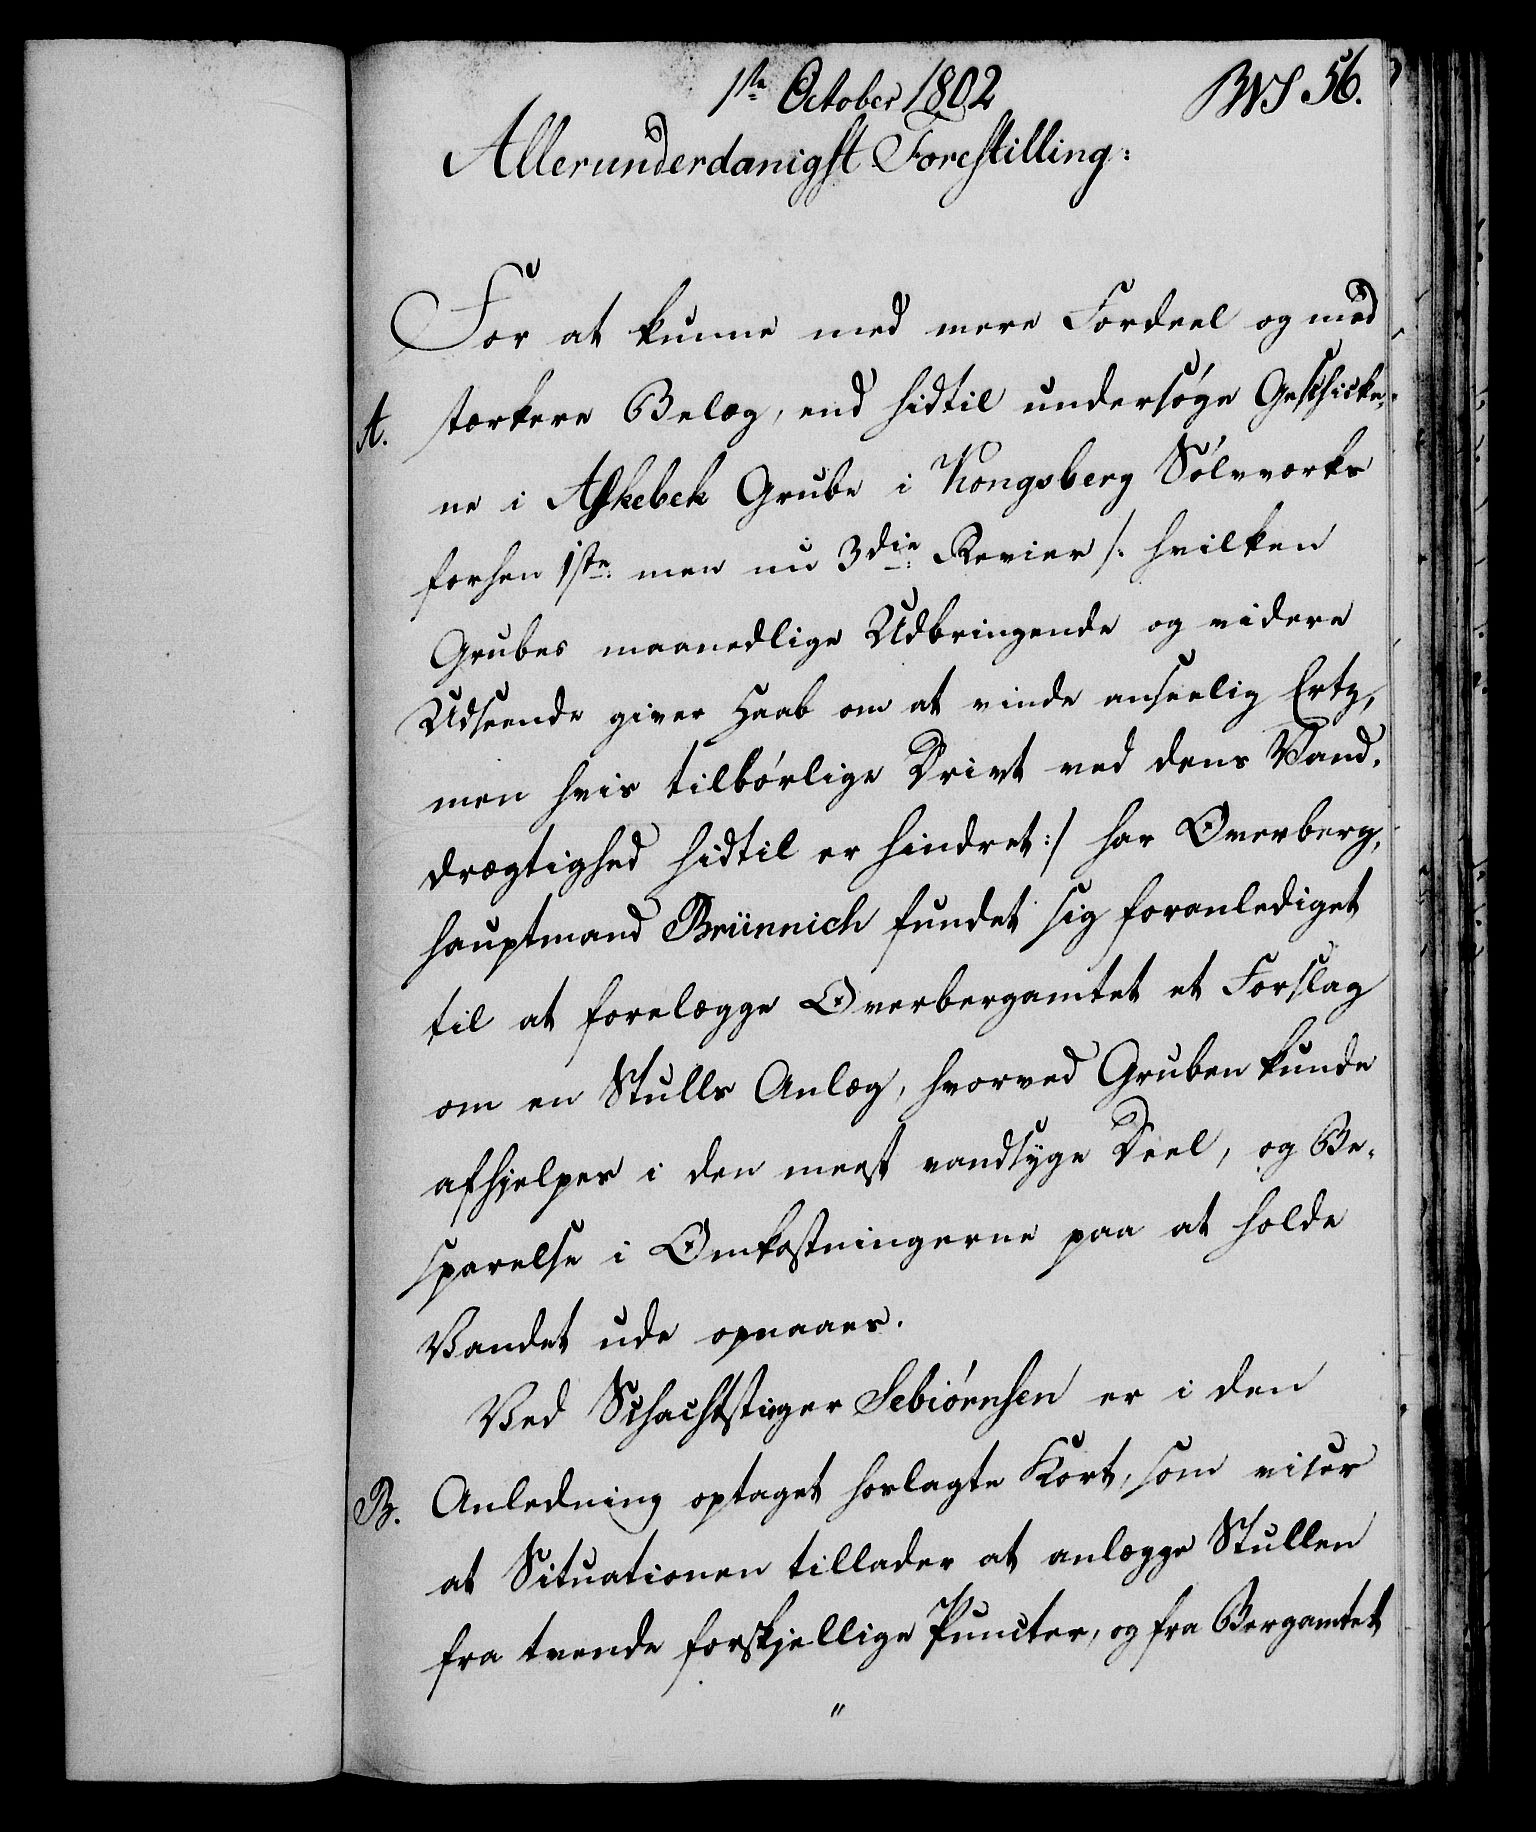 1ste October 1802
BVS 56.
Allerunderdanigst Forestilling:
For at kunne med mere Fordeel og med
A. stærkere Belæg, end hidtil undersøge Geschicke-
ne i Askebek Grube i Kongsberg Sølvværks
forhen 1ste men nu 3die Revier /: hvilken
Grubes maanedlige Udbringende og videre
Udseende giver Haab om at vinde anseelig Ertz,
men hvis tilbørlige Drivt ved dens Vand-
drægtighed hidtil er hindret :/ har Overberg-
hauptmand Brünnich fundet sig foranlediget
til at forelægge Overbergamtet et Forslag
om en Stulls Anlæg, hvorved Gruben kunde
afhjelpes i den meest vandsyge Deel, og Be-
sparelse i Omkostningerne paa at holde
Vandet ude opnaaes.
Ved Schachtstiger Sebiørnsen er i den
B. Anledning optaget hoslagte Kort, som viser
at Situationen tillader at anlægge Stullen
fra tvende forskjellige Puncter, og fra Bergamtet
"